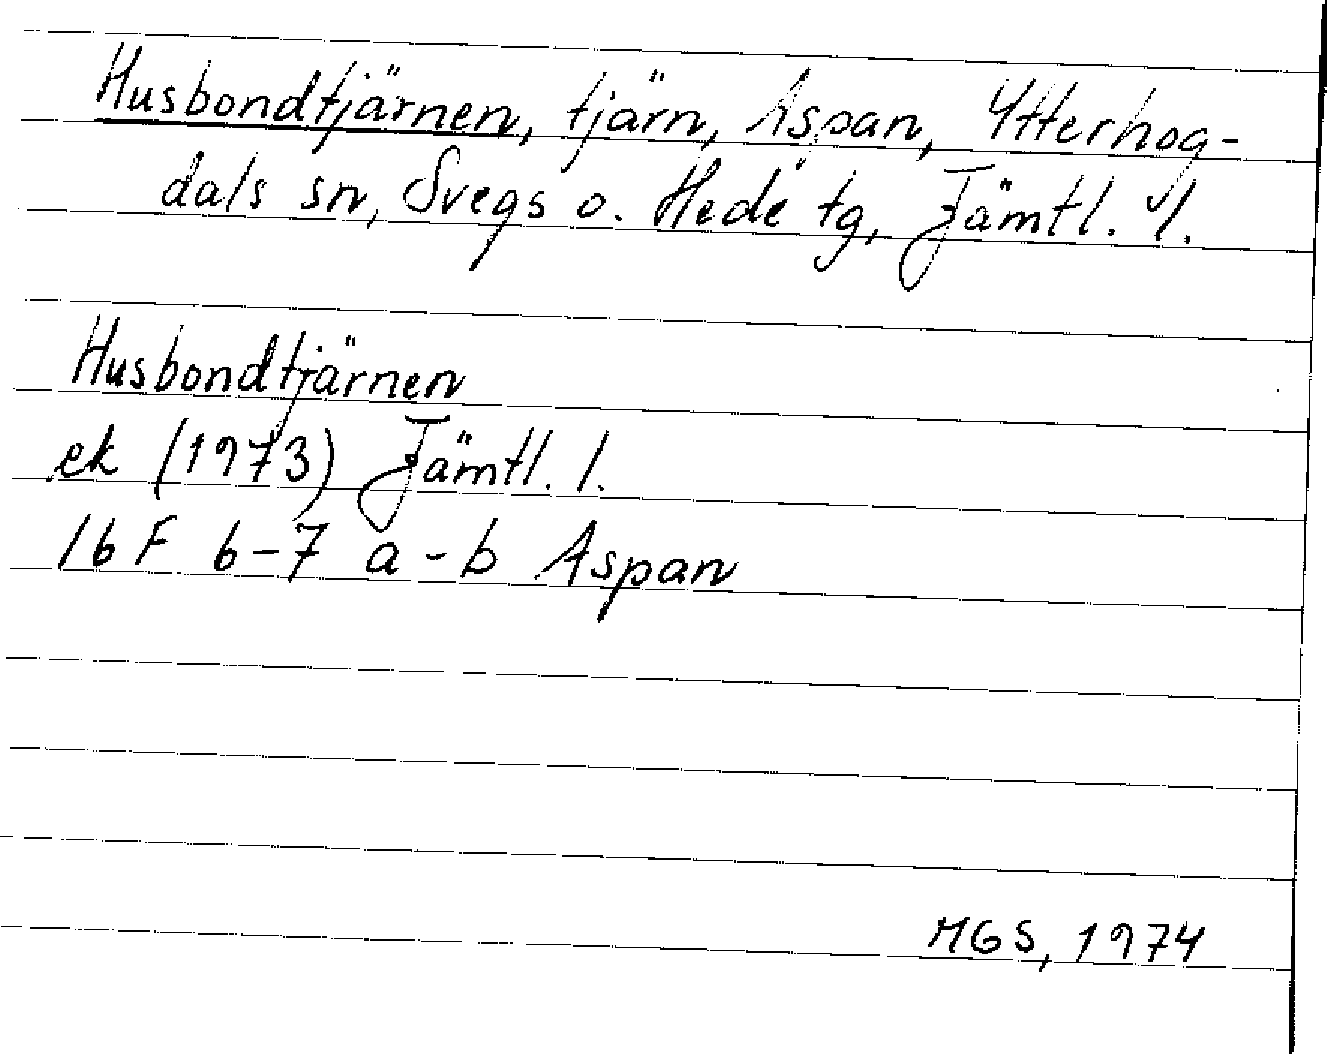 Husbondtjärnen, tjärn, Aspan, Ytterhog-
dals sn, Svegs o. Hede tg, Jämtl. l.
Husbondtjärnen
ek (1973) Jämtl. l.
16 F 6-7 a-b Aspan
MGS, 1974